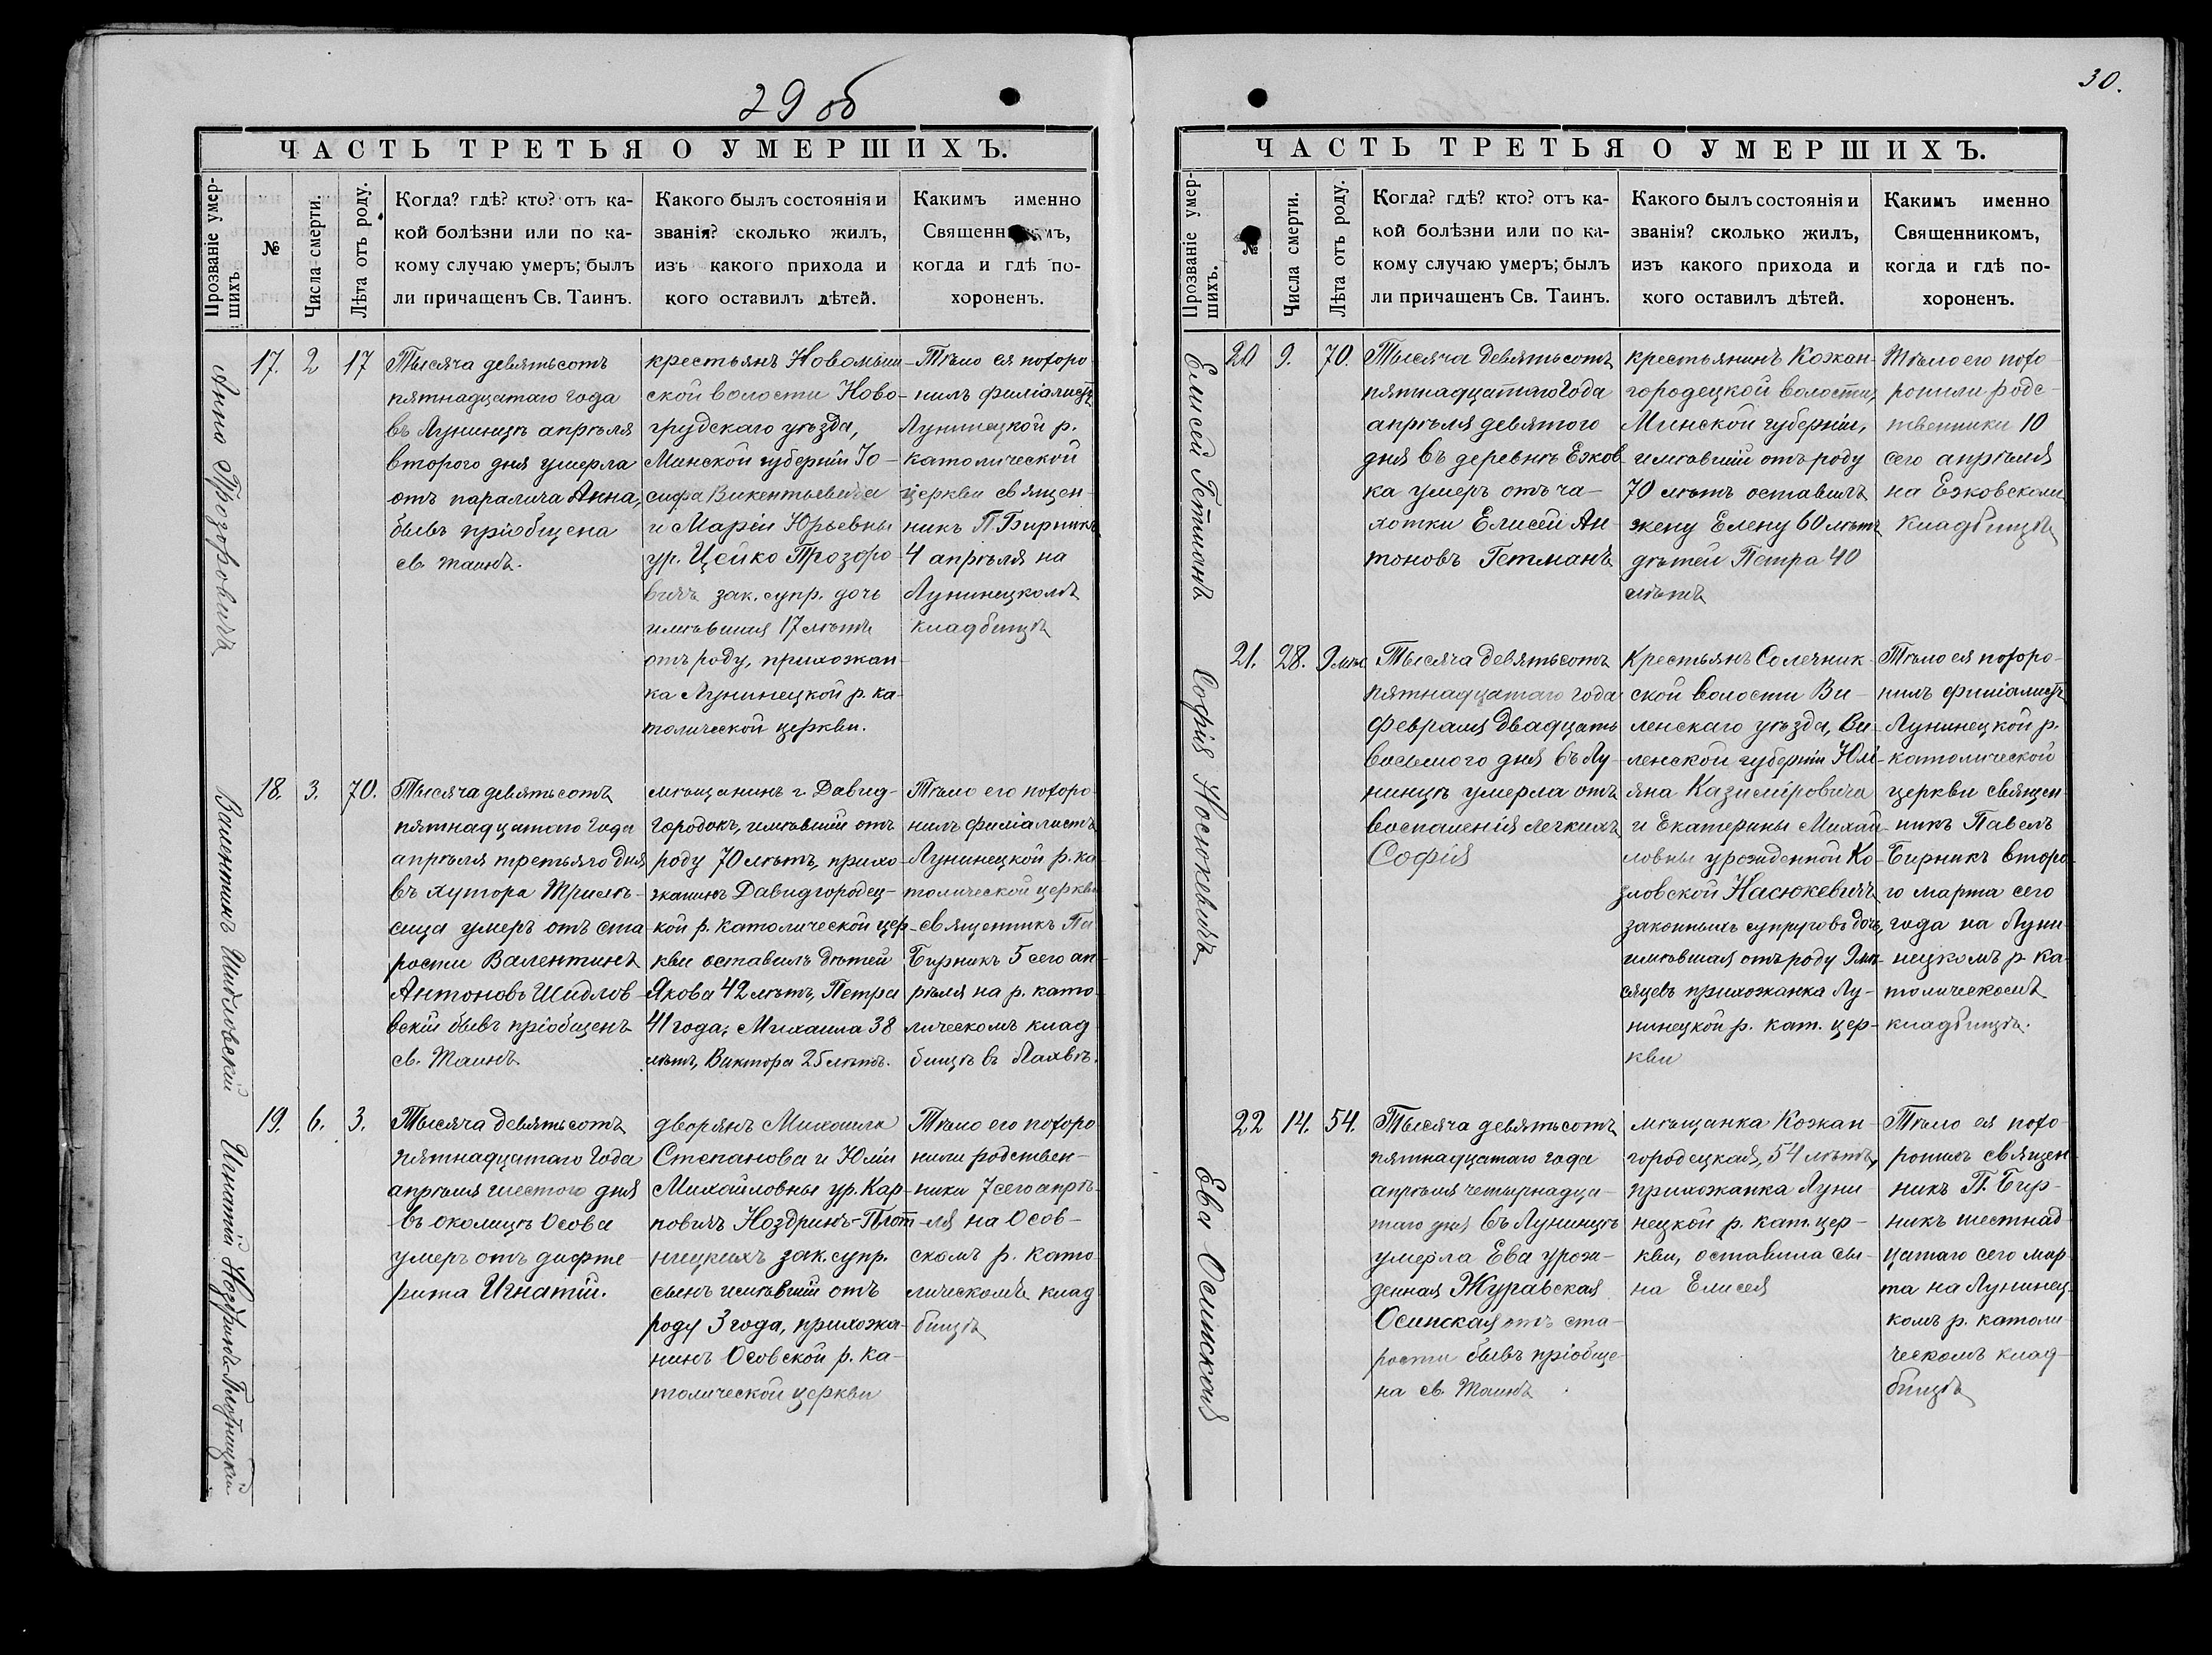 29 об
ЧАСТЬ ТРЕТЬЯ О УМЕРШИХЪ.
Прозваніе умер-
шихъ
№
Числа смерти.
Лѣта отъ роду.
Когда? гдѣ? кто? отъ ка-
кой болѣзни или по ка-
кому случаю умеръ; былъ
ли причащенъ Св. Таинъ.
Какого былъ состоянія и
званія? сколько жилъ,
изъ какого прихода и
кого оставилъ дѣтей.
Какимъ именно
Священникомъ,
когда и гдѣ по-
хороненъ.
Анна Прозоровичъ
17.
2
17
Тысяча девятьсотъ
пятнадцатаго года
въ Лунинцѣ апрѣля
второго дня умерла
отъ паралича Анна,
бывъ пріобщена
св. таинъ.
крестьянъ Новомыш-
ской волости Ново-
грудскаго уѣзда,
Минской губерніи Іо-
сифа Викентьевича
и Маріи Юрьевны
ур. Цейко Прозоро
вичъ зак. супр. дочь
имѣвшая 17 лѣтъ
отъ роду, прихожан-
ка Лунинецкой р. ка-
толической церкви.
Тѣло ея похоро
нилъ филіалистъ
Лунинецкой р.
католической
церкви священ-
никъ П. Бирникъ
4 апрѣля на
Лунинецкомъ
кладбищѣ
Валентинъ Шидловскій
18.
3.
70.
Тысяча девятьсотъ
пятнадцатаго года
апрѣля третьяго дня
въ хутора
умеръ отъ ста
рости Валентинъ
Антоновъ Шидлов-
вскій бывъ пріобщенъ
св. Таинъ.
мѣщанинъ г. Давид-
городокъ, имѣвшій отъ
роду 70 лѣтъ, прихо-
жанинъ Давидгородец-
кой р. католической цер-
кви оставилъ дѣтей
Якова 42 лѣтъ, Петра
41 года, Михаила 38
лѣтъ, Виктора 25 лѣтъ.
Тѣло его похоро
нилъ филіалистъ
Лунинецкой р. ка
толической церкви
священникъ Па
Бирникъ 5 сего ап-
рѣля на р. като-
лическомъ клад
бищѣ въ Лахвѣ.
Игнатій Ноздринъ-Плотницкій
19.
6.
3.
Тысяча девятьсотъ
пятнадцатаго года
апрѣля шестого дня
въ околицѣ Осова
умеръ отъ дифте-
рита Игнатій.
дворянъ Михаила
Степанова и Юліи
Михайловны ур. Кар-
повичъ Ноздринъ-Плот-
ницкихъ зак. супр.
сынъ имѣвшій отъ
роду 3 года, прихожа-
нинъ Осовской р. ка-
толической церкви
Тѣло его похоро
нили родствен-
ники 7 сего апрѣ-
ля на Осов-
скомъ р. като-
лическомъ клад
бищѣ
30.
ЧАСТЬ ТРЕТЬЯ О УМЕРШИХЪ.
Прозваніе умер-
шихъ.
№
Числа смерти.
Лѣта отъ роду.
Когда? гдѣ? кто? отъ ка-
кой болѣзни или по ка-
кому случаю умеръ; былъ
ли причащенъ Св. Таинъ.
Какого былъ состоянія и
званія? сколько жилъ,
изъ какого прихода и
кого оставилъ дѣтей.
Какимъ именно
Священникомъ,
когда и гдѣ по-
хороненъ.
Елисей Гетманъ
20
9.
70.
Тысяча девятьсотъ
пятнадцатаго года
апрѣля девятого
дня въ деревнѣ Езков
ка умеръ отъ ча-
хотки Елисей Ан-
тоновъ Гетманъ
крестьянинъ Кожан-
городецкой волости,
Минской губерніи,
имѣвшій отъ роду
70 лѣтъ оставилъ
жену Елену 60 лѣтъ
дѣтей Петра 40
лѣтъ
Тѣло его похо-
ронили родс-
твенники 10
сего апрѣля
на Езковскомъ
кладбищѣ
Софія Насюкевичъ
21.
28.
9 мѣс
Тысяча девятьсотъ
пятнадцатаго года
февраля двадцать
восьмого дня въ Лу-
нинцѣ умерла отъ
воспаленія легкихъ
Софія
крестьянъ Солечник-
ской волости Ви-
ленскаго уѣзда, Ви-
ленской губерніи Юлі-
яна Казиміровича
и Екатерины Михай-
ловны урожденной Ко-
зловской Насюкевичъ
законныхъ супруговъ дочь,
имѣвшая отъ роду 9 мѣ-
сяцевъ прихожанка Лу-
нинецкой р. кат. цер-
кви
Тѣло ея похоро-
нилъ филіалистъ
Лунинецкой р.
католической
церкви священ-
никъ Павелъ
Бирникъ второ-
го марта сего
года на Луни-
нецкомъ р. ка-
толическомъ
кладбищѣ.
Ева Осинская
22
14.
54.
Тысяча девятьсотъ
пятнадцатаго года
апрѣля четырнадца-
таго дня въ Лунинцѣ
умерла Ева урож-
денная Журавская
Осинская отъ ста-
рости бывъ пріобще-
на св. Таинъ
мѣщанка Кожан-
городецкая, 54 лѣтъ,
прихожанка Луни-
нецкой р. кат. цер-
кви, оставила сы-
на Елисея
Тѣло ея похо-
ронилъ священ
никъ П. Бир-
никъ шестнад-
цатаго сего мар-
та на Лунинец-
комъ р. католи
ческомъ клад-
бищѣ